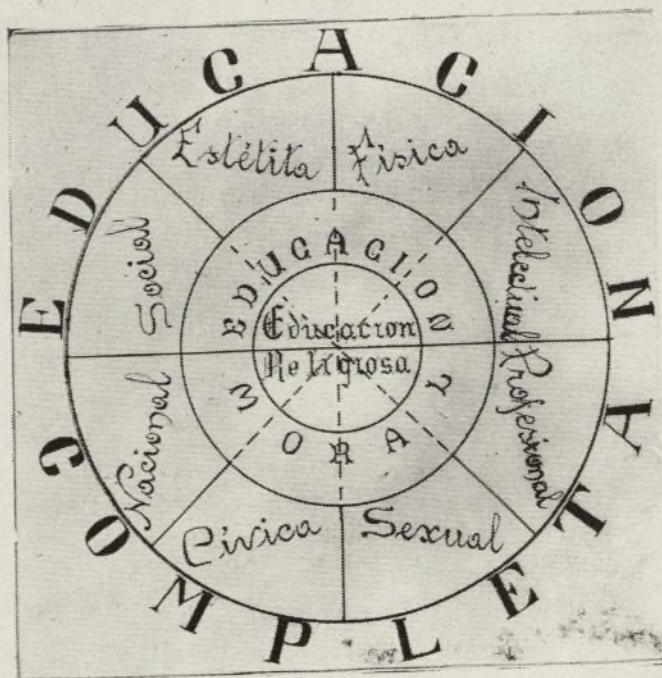 EDUCACION
COMPLETA
Estética
Física
Intelectual
Profesional
Sexual
Cívica
Nacional
Social
EDUCACION
MORAL
Educacion
Religiosa